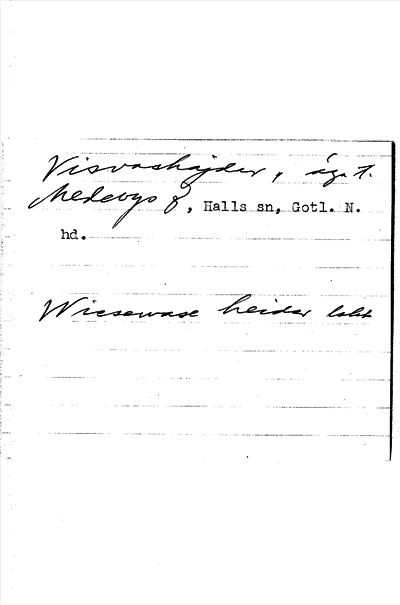 Visvashajder, äg. t.
Medebys 8, Halls sn, Gotl. N.
hd.
Wiesewase heider